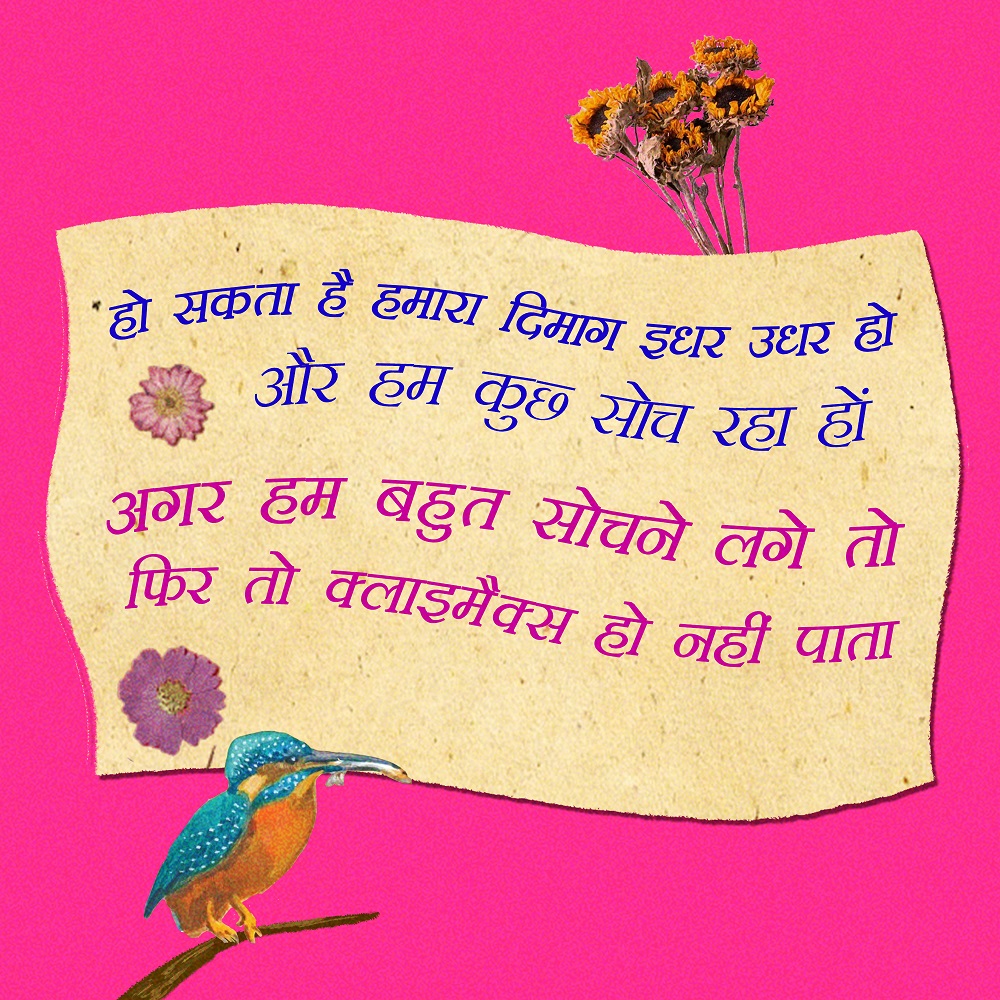 हो सकता है हमारा दिमाग इधर उधर हो
और हम कुछ सोच रहा हों
अगर हम बहुत सोचने लगे तो
फिर तो क्लाइमैक्स हो नहीं पाता